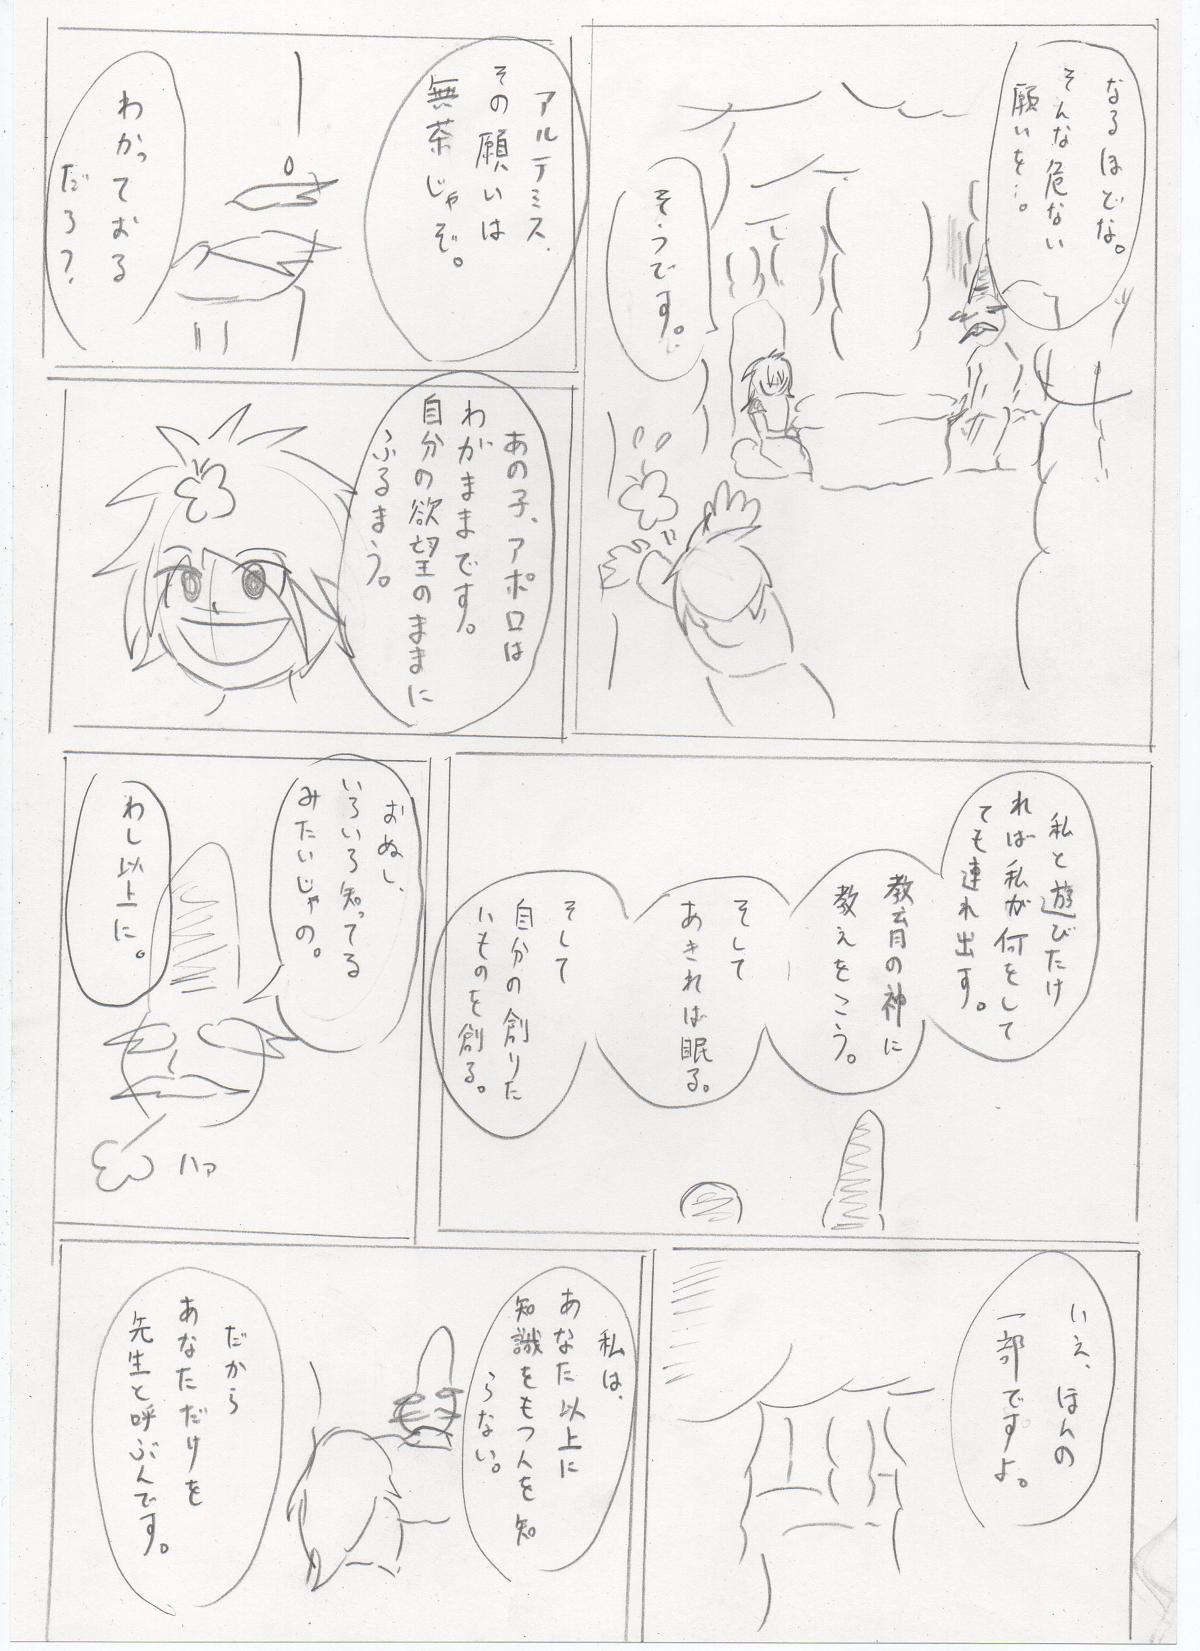 なるほどな。
そんな危ない
願いを…。
そうです。
アルテミス、
その願いは
無茶じゃぞ。
わかっておる
だろ？
あの子、アポロは
わがままです。
自分の欲望のままに
ふるまう。
私と遊びたけ
れば私が何をして
ても連れ出す。
教育の神に
教えをこう。
そして
あきれば眠る。
そして
自分の創りた
いものを創る。
おぬし、
いろいろ知ってる
みたいじゃの。
わし以上に。
ハァ
いえ、ほんの
一部ですよ。
私は、
あなた以上に
知識をもつ人を知
らない。
だから
あなただけを
先生と呼ぶんです。